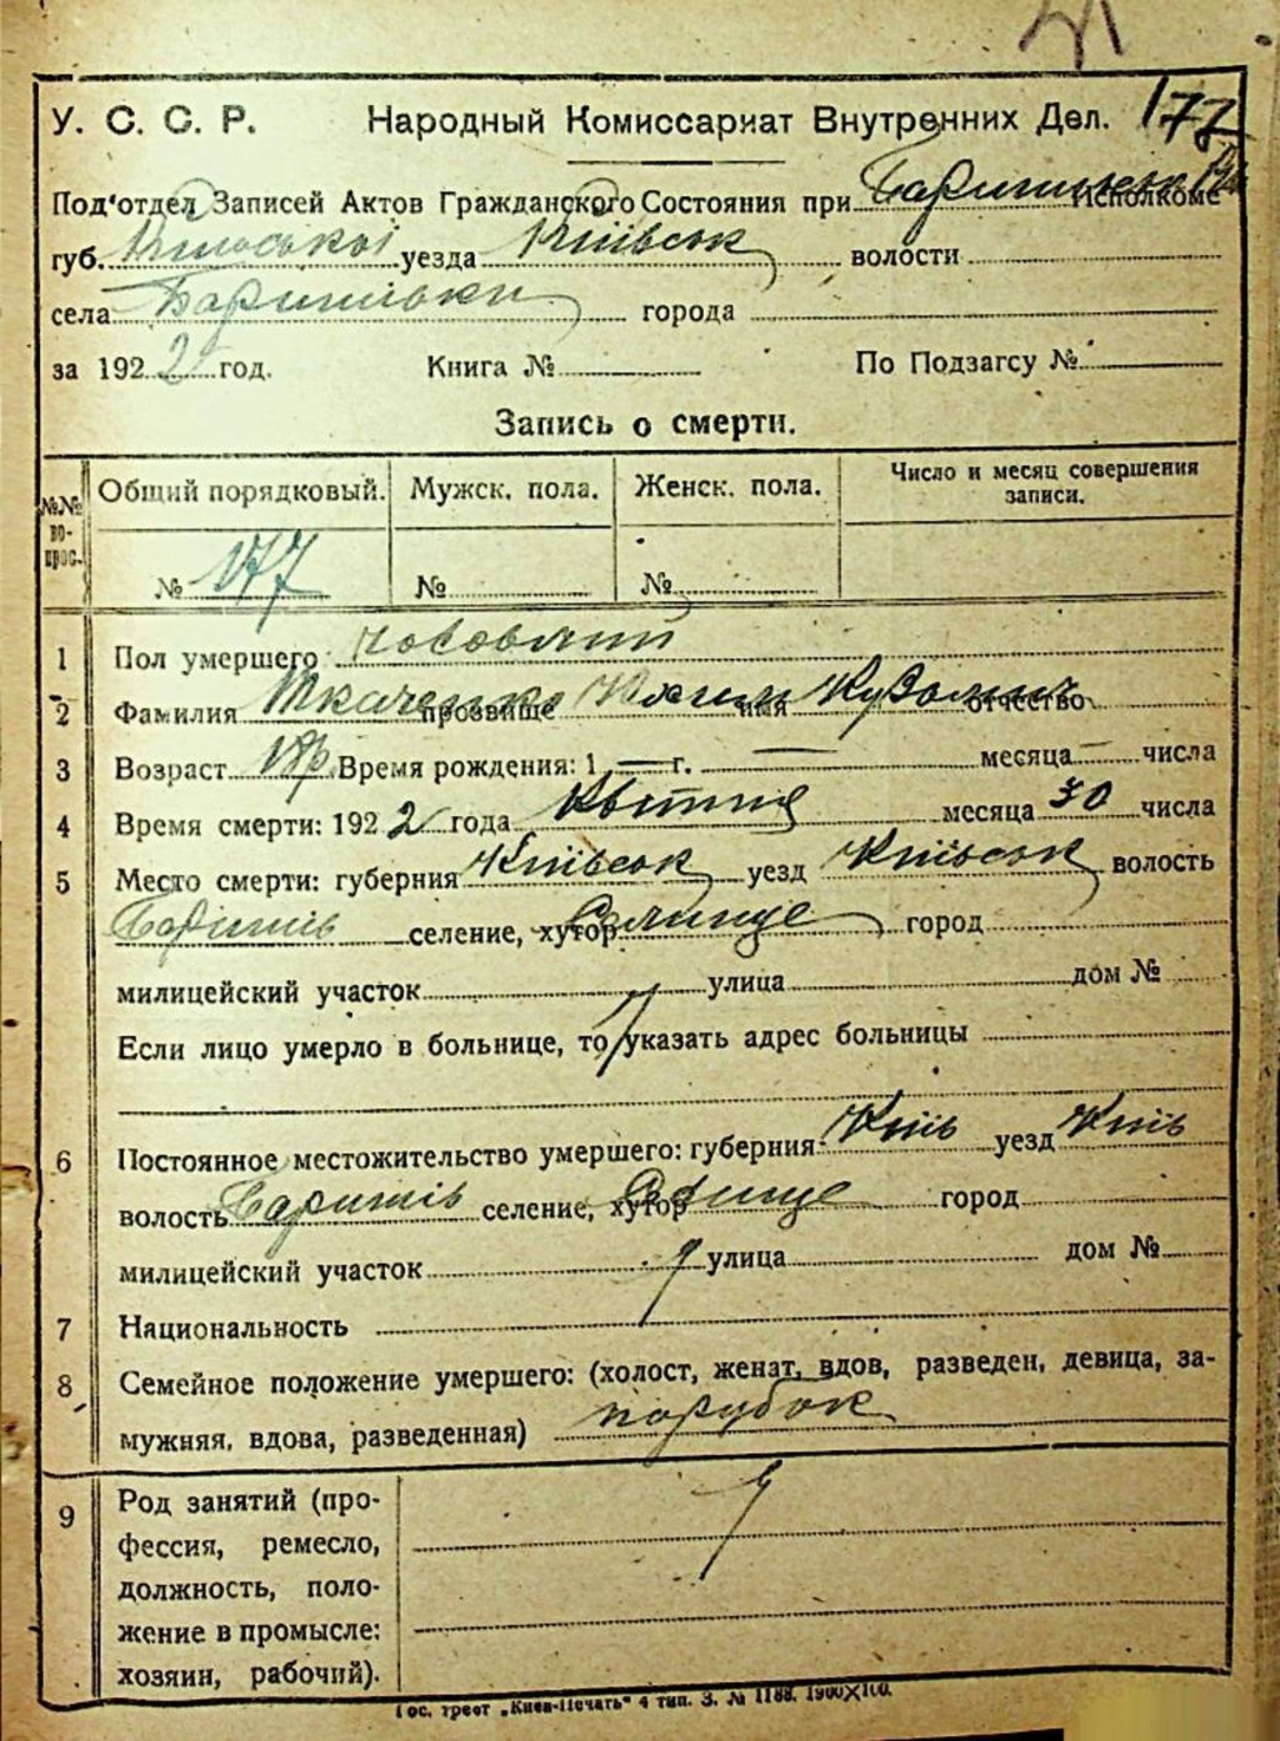 177
У. С. С. Р. Народный Комиссариат Внутренних Дел.
Под'отдел Записей Актов Гражданского Состояния при Исполкоме
губ. Київської уезда Київськ волости
села Баришівки города
за 1922 год. Книга № По Подзагсу №
Запись о смерти.
№№ вопрос. Общий порядковый. Мужск. пола. Женск. пола. Число и месяц совершения записи.
№ 177 № №
1 Пол умершего чоловічий
2 Фамилия Ткаченко прозвище имя отчество
3 Возраст Время рождения: 1 — г. — месяца — числа
4 Время смерти: 1922 года Квітня месяца 30 числа
5 Место смерти: губерния Київськ уезд Київськ волость
Баришів селение, хутор Селище город
милицейский участок улица дом №
Если лицо умерло в больнице, то указать адрес больницы
6 Постоянное местожительство умершего: губерния: Київ уезд Київ
волость Баришів селение, хутор Селище город
милицейский участок улица дом №
7 Национальность
8 Семейное положение умершего: (холост, женат, вдов, разведен, девица, за-
мужняя, вдова, разведенная) парубок
9 Род занятий (про-
фессия, ремесло,
должность, поло-
жение в промысле:
хозяин, рабочий).
Гос. трест „Киев-Печать" 4 тип. З. № 1188. 1900Х100.